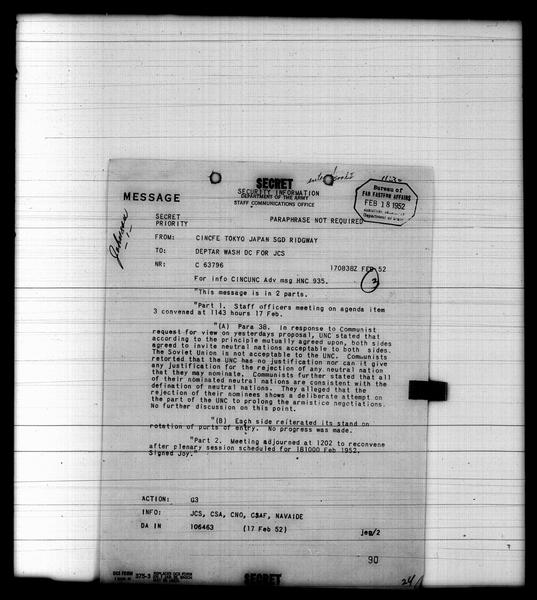 SECRET
SECURITY INFORMATION
DEPARTMENT OF THE ARMY
STAFF COMMUNICATIONS OFFICE
Bureau of
FAR EASTERN AFFAIRS
FEB 18 1952
Department of State
MESSAGE
Johnson
-1-
SECRET
PRIORITY
PARAPHRASE NOT REQUIRED
FROM: CINCFE TOKYO JAPAN SGD RIDGWAY
TO: DEPTAR WASH DC FOR JCS
NR: C 63796 170838Z FEB 52
For info CINCUNC Adv msg HNC 935.
2
"This message is in 2 parts.
"Part 1. Staff officers meeting on agenda item
3 convened at 1143 hours 17 Feb.
"(A) Para 38. In response to Communist
request for view on yesterdays proposal, UNC stated that
according to the principle mutually agreed upon, both sides
agreed to invite neutral nations acceptable to both sides.
The Soviet Union is not acceptable to the UNC. Communists
retorted that the UNC has no justification nor can it give
any justification for the rejection of any neutral nation
that they may nominate. Communists further stated that all
of their nominated neutral nations are consistent with the
defination of neutral nations. They alleged that the
rejection of their nominees shows a deliberate attempt on
the part of the UNC to prolong the armistice negotiations.
No further discussion on this point.
"(B) Each side reiterated its stand on
rotation of ports of entry. No progress was made.
"Part 2. Meeting adjourned at 1202 to reconvene
after plenary session scheduled for 181000 Feb 1952.
Signed Joy."
ACTION: G3
INFO: JCS, CSA, CNO, CSAF, NAVAIDE
DA IN 106463 (17 Feb 52) jen/2
90
OCS FORM 375-3
SECRET
24